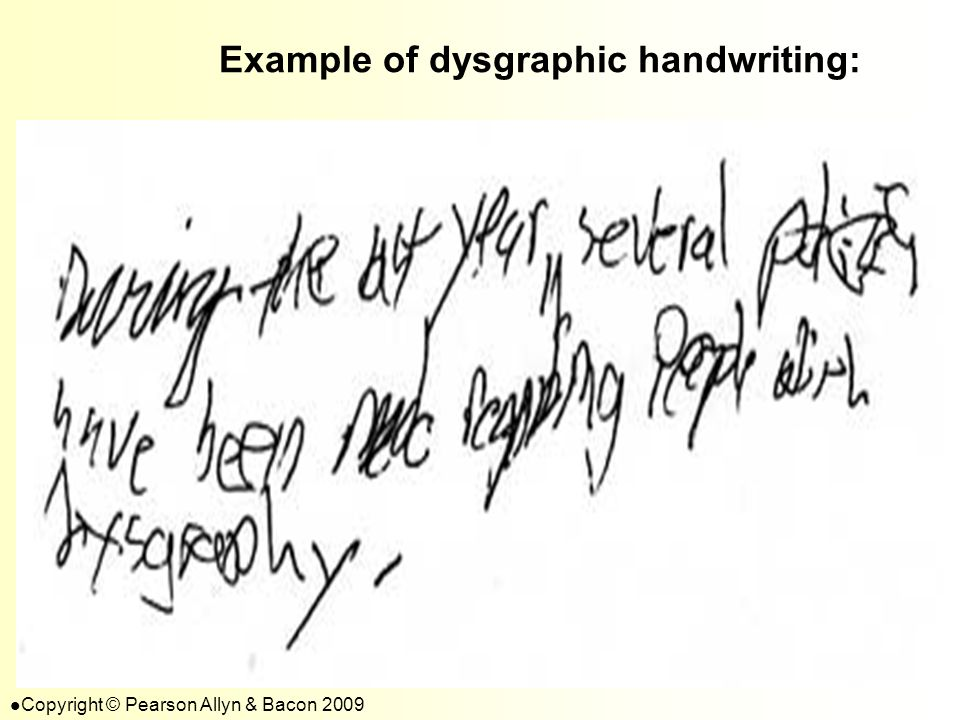 Example of dysgraphic handwriting:
During the last year, several
have been made regarding People with
Dysgraphy.
●Copyright © Pearson Allyn & Bacon 2009